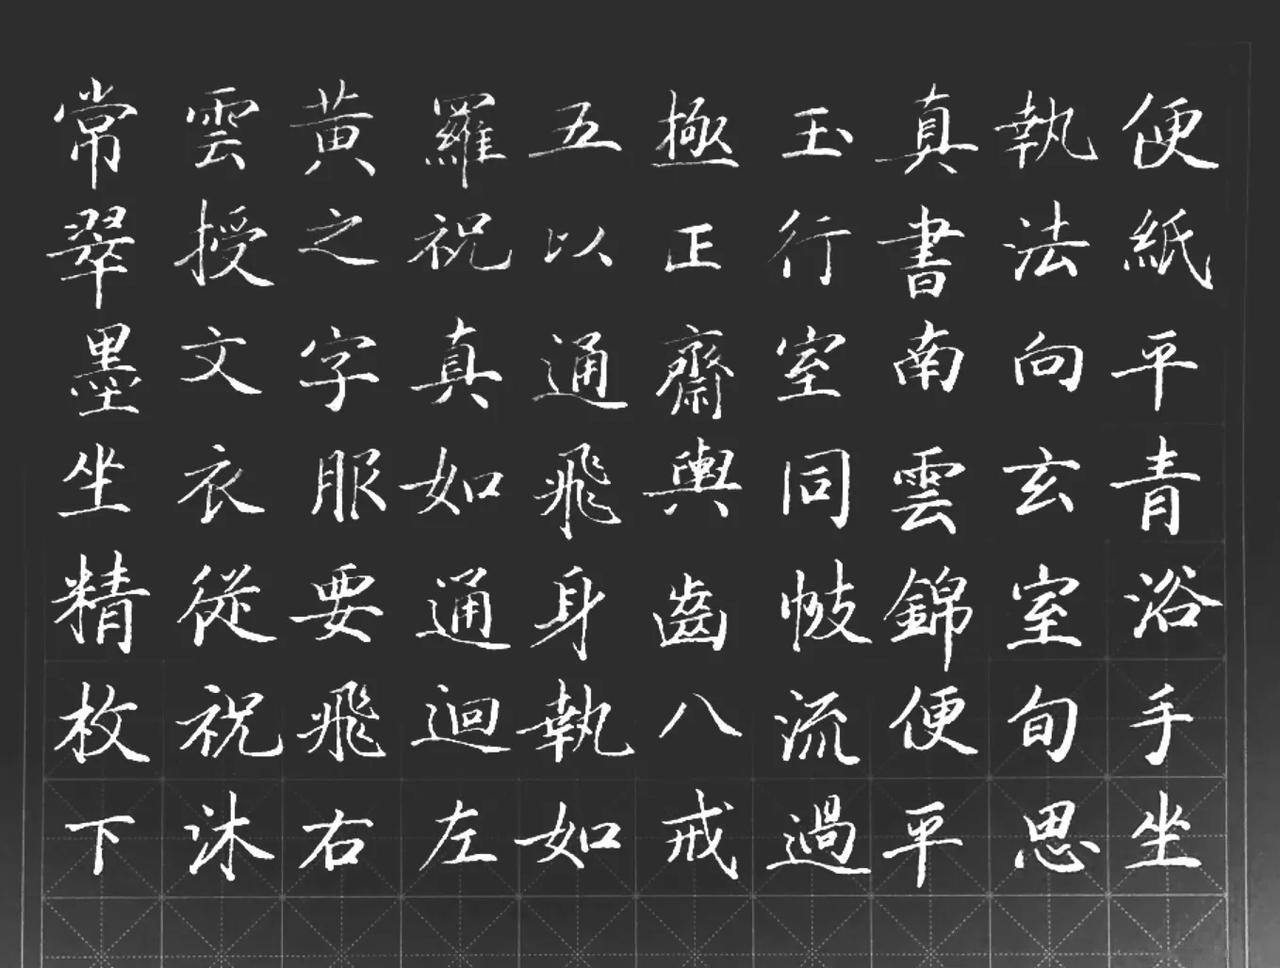 便紙平青浴手坐
執法向玄室旬思
真書南雲錦便平
玉行室同帔流過
極正齋輿齒八戒
五以通飛身執如
羅祝真如通迴左
黄之字服要飛右
雲授文衣從祝沐
常翠墨坐精枚下